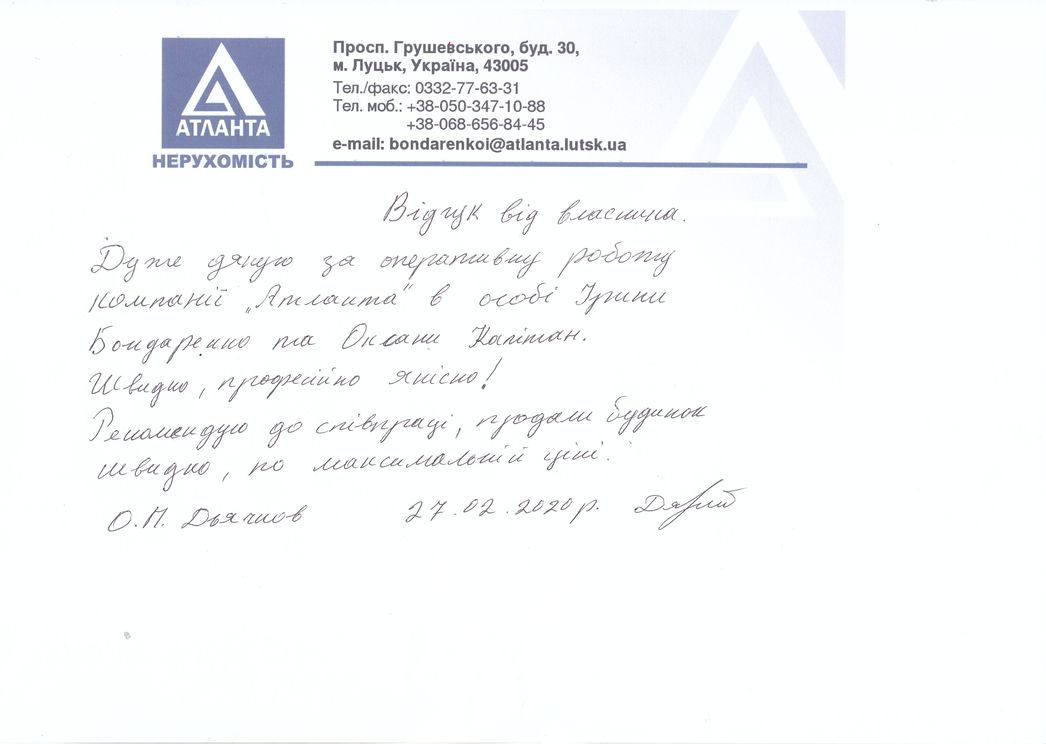 АТЛАНТА
НЕРУХОМІСТЬ
Просп. Грушевського, буд. 30,
м. Луцьк, Україна, 43005
Тел./факс: 0332-77-63-31
Тел. моб.: +38-050-347-10-88
+38-068-656-84-45
e-mail: bondarenkoi@atlanta.lutsk.ua
Відгук від власника.
Дуже дякую за оперативну роботу
компанії „Атланта" в особі Ірини
Бондаренко та Оксани Капітан.
Швидко, професійно якісно!
Рекомендую до співпраці, продали будинок
швидко, по максимальній ціні.
О.П. Дьячков 27.02.2020 р.